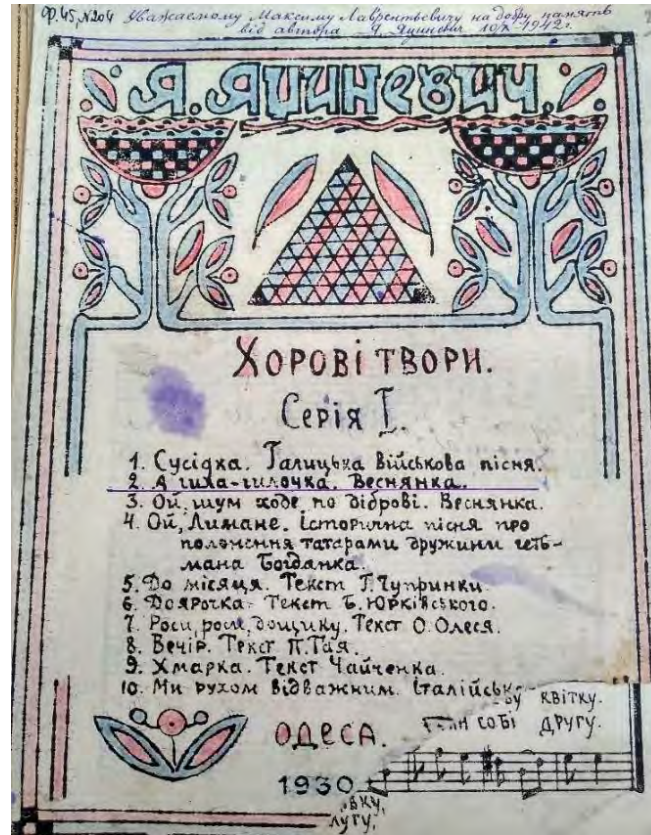 Ф.45, №204 Уважаемому Максиму Лаврентьевичу на добру память
від автора Я. Яциневич 1942 г.
Я. ЯЦИНЕВИЧ.
ХОРОВІ ТВОРИ.
СЕРІЯ І.
1. Сусідка. Галицька військова пісня.
2. А гила-гилочка. Веснянка.
3. Ой, шум ходе по діброві. Веснянка.
4. Ой, Лимане. Історична пісня про
полонення татарами дружини геть-
мана Богданка.
5. До місяця. Текст Г. Чупринки.
6. Доярочка. Текст Б. Юрківського.
7. Роси, роси, дощику. Текст О. Олеся.
8. Вечір. Текст П. Тая.
9. Хмарка. Текст Чайченка.
10. Ми рухом відважним. Італійськ
КВІТКУ.
СОБІ ДРУГУ.
ОДЕСА.
1930